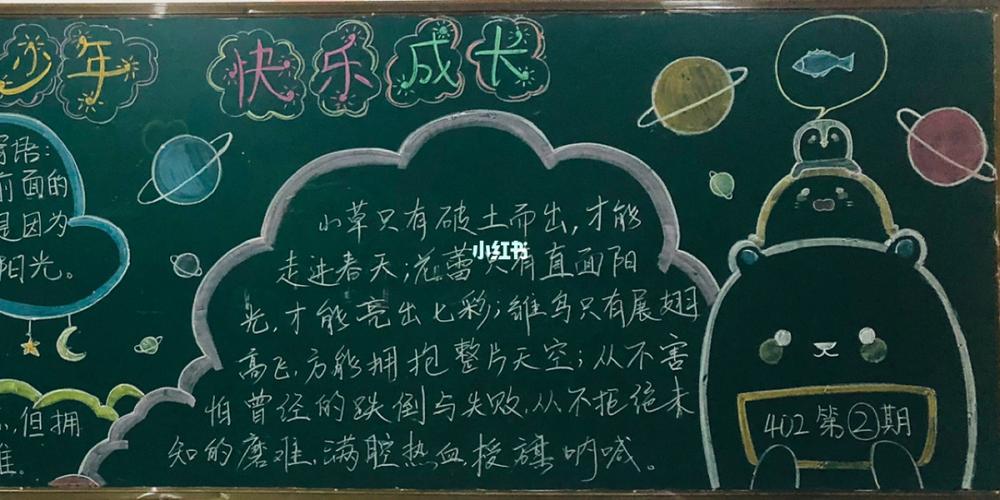 少年 快乐成长
语:
前面的
是因为
阳光。
小草只有破土而出,才能
走进春天;花蕾只有直面阳
光,才能亮出七彩;雏鸟只有展翅
高飞,方能拥抱整片天空;从不害
怕曾经的跌倒与失败,从不拒绝未
知的磨难,满腔热血摇旗呐喊。
小红书
但拥
402第②期